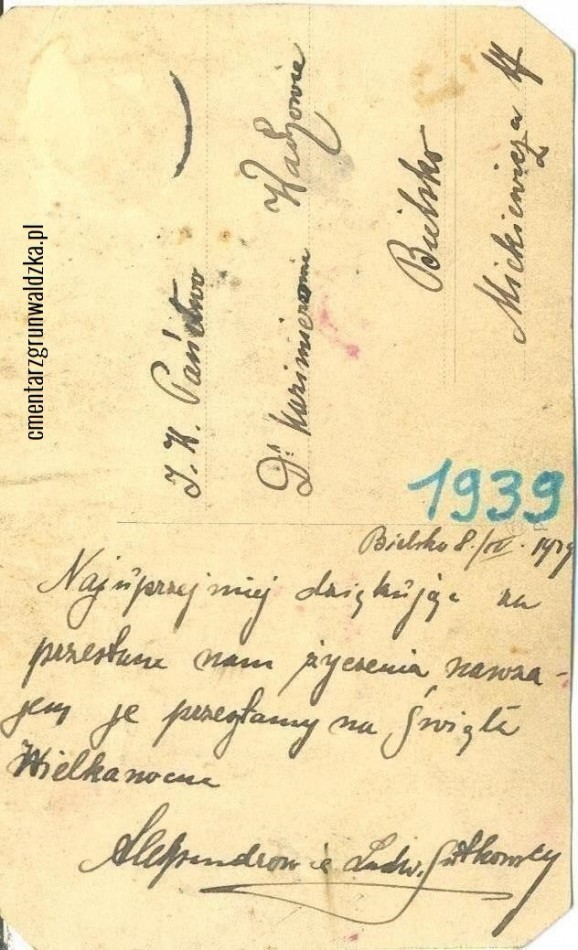 cmentarzgrunwaldzka.pl
J. W. Państwo
Dr. Kazimierowie
Bielsko
Mickiewicza
1939
Bielsko 8./IV. 1939
Najuprzejmiej dziękując za
przesłane nam życzenia nawza-
jem je przesyłamy na Święta
Wielkanocne
Aleksandrowie Ludw. Gutkowscy